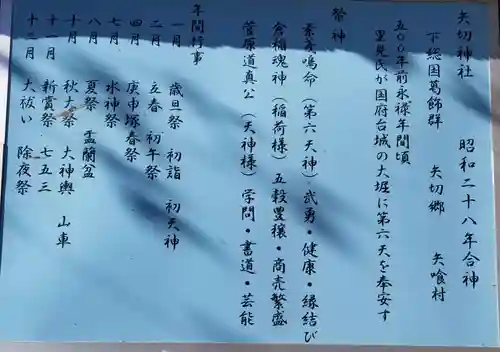 矢切神社 昭和二十八年合神
下総国葛飾群 矢切郷 矢喰村
五〇〇年前永禄年間頃
里見氏が国府台城の大堀に第六天を奉安す
祭神
素戔鳴命（第六天神）武勇・健康・縁結び
倉稲魂神（稲荷様）五穀豊穣・商売繁盛
菅原道真公（天神様）学問・書道・芸能
年間行事
一月 歳旦祭 初詣 初天神
二月 立春 初午祭
四月 庚申塚春祭
七月 水神祭
八月 夏祭 盂蘭盆
十月 秋大祭 大神輿 山車
十一月 新嘗祭・七五三
十二月 大祓い 除夜祭